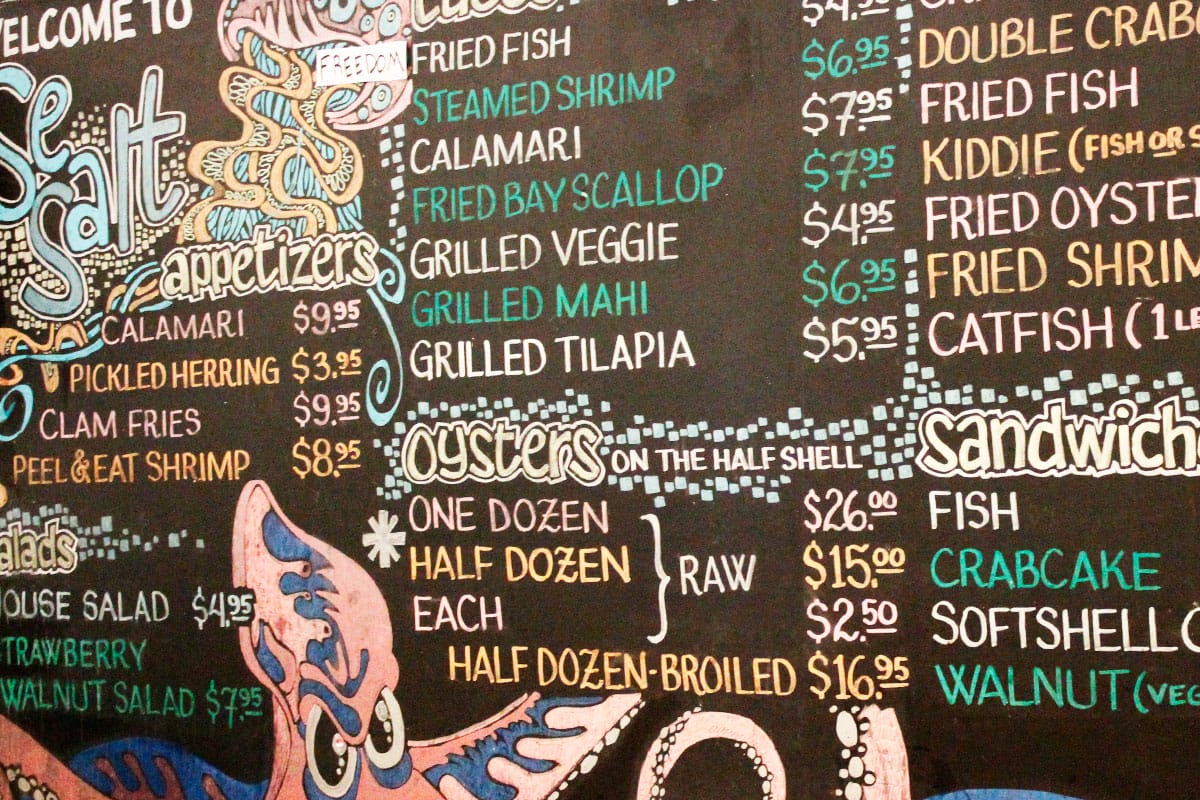 WELCOME TO
Sea Salt
FREEDOM
appetizers
CALAMARI $9.95
PICKLED HERRING $3.95
CLAM FRIES $9.95
PEEL & EAT SHRIMP $8.95
alads
HOUSE SALAD $4.95
STRAWBERRY
WALNUT SALAD $7.95
tacos
FRIED FISH $4.95
STEAMED SHRIMP $6.95
CALAMARI $7.95
FRIED BAY SCALLOP $7.95
GRILLED VEGGIE $4.95
GRILLED MAHI $6.95
GRILLED TILAPIA $5.95
oysters ON THE HALF SHELL
* ONE DOZEN $26.00
HALF DOZEN } RAW $15.00
EACH $2.50
HALF DOZEN-BROILED $16.95
DOUBLE CRABC
FRIED FISH
KIDDIE (FISH OR S
FRIED OYSTE
FRIED SHRIM
CATFISH (1 LE
sandwich
FISH
CRABCAKE
SOFTSHELL C
WALNUT (VEG